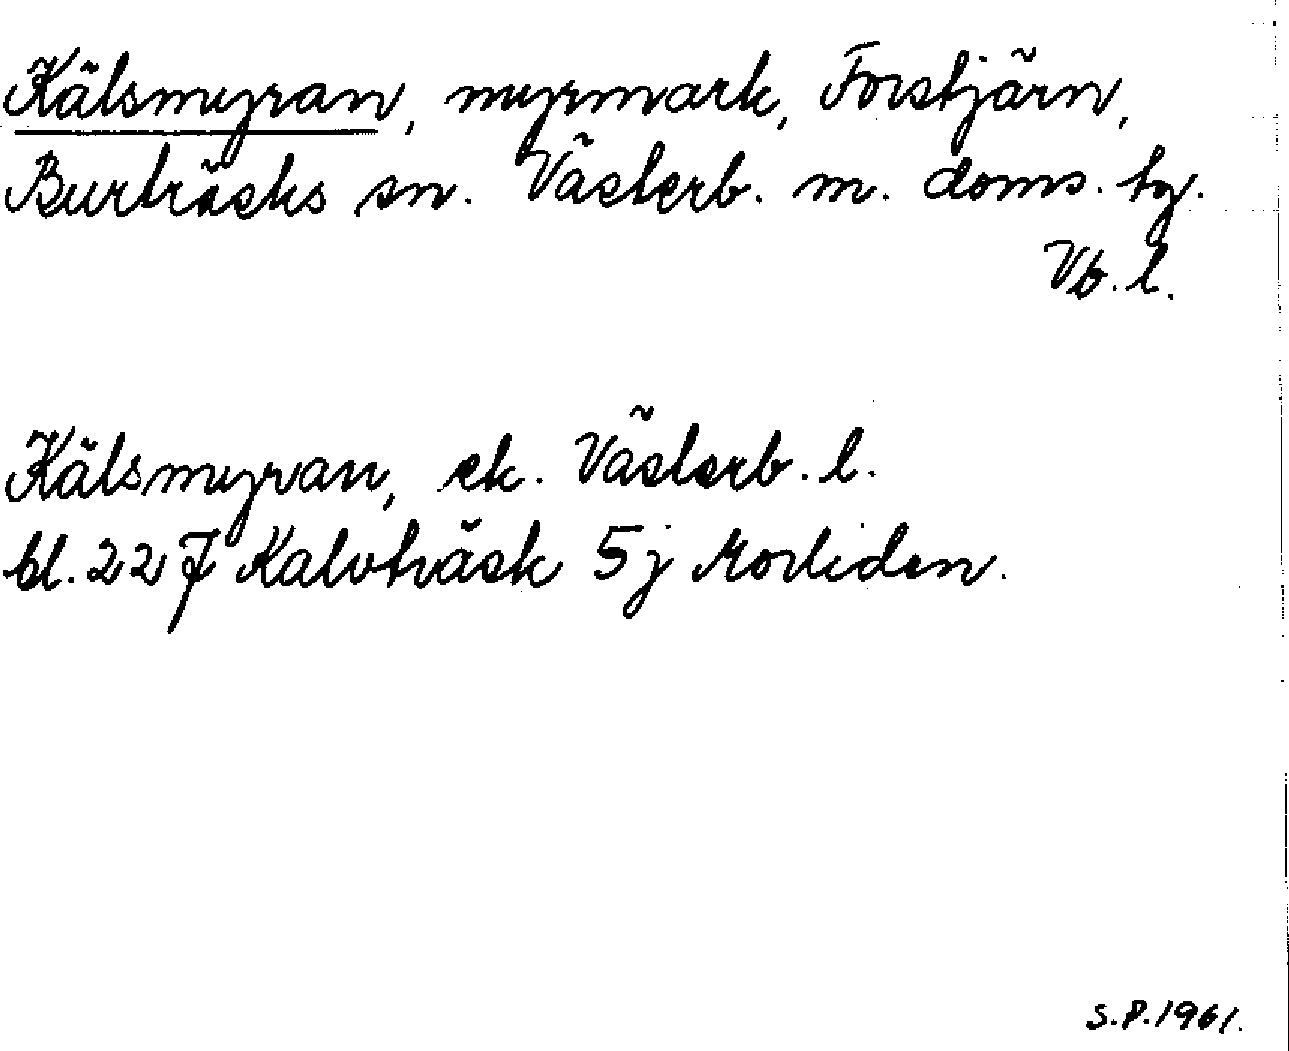 Kälsmyran, myrmark, Forstjärn,
Burträsks sn. Västerb. m. doms. tg.
Vb. l.
Kälsmyran, ek. Västerb. l.
bl. 22 J Kalvträsk 5 j Morliden.
S.P. 1961.